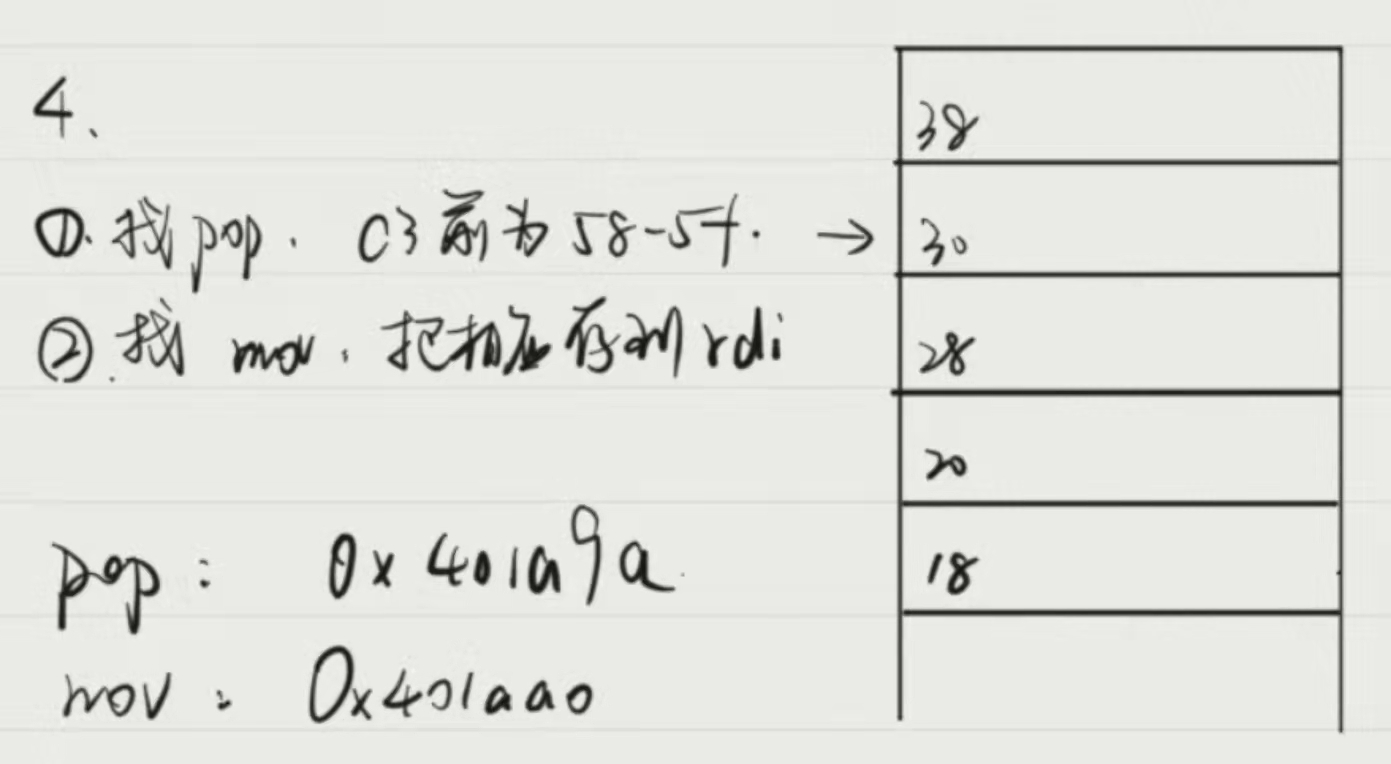 4、
①. 找pop. C3前为58-5f. →
②. 找 mov. 把相应存到rdi
pop: 0x401a9a
mov: 0x401aa0
38
30
28
20
18